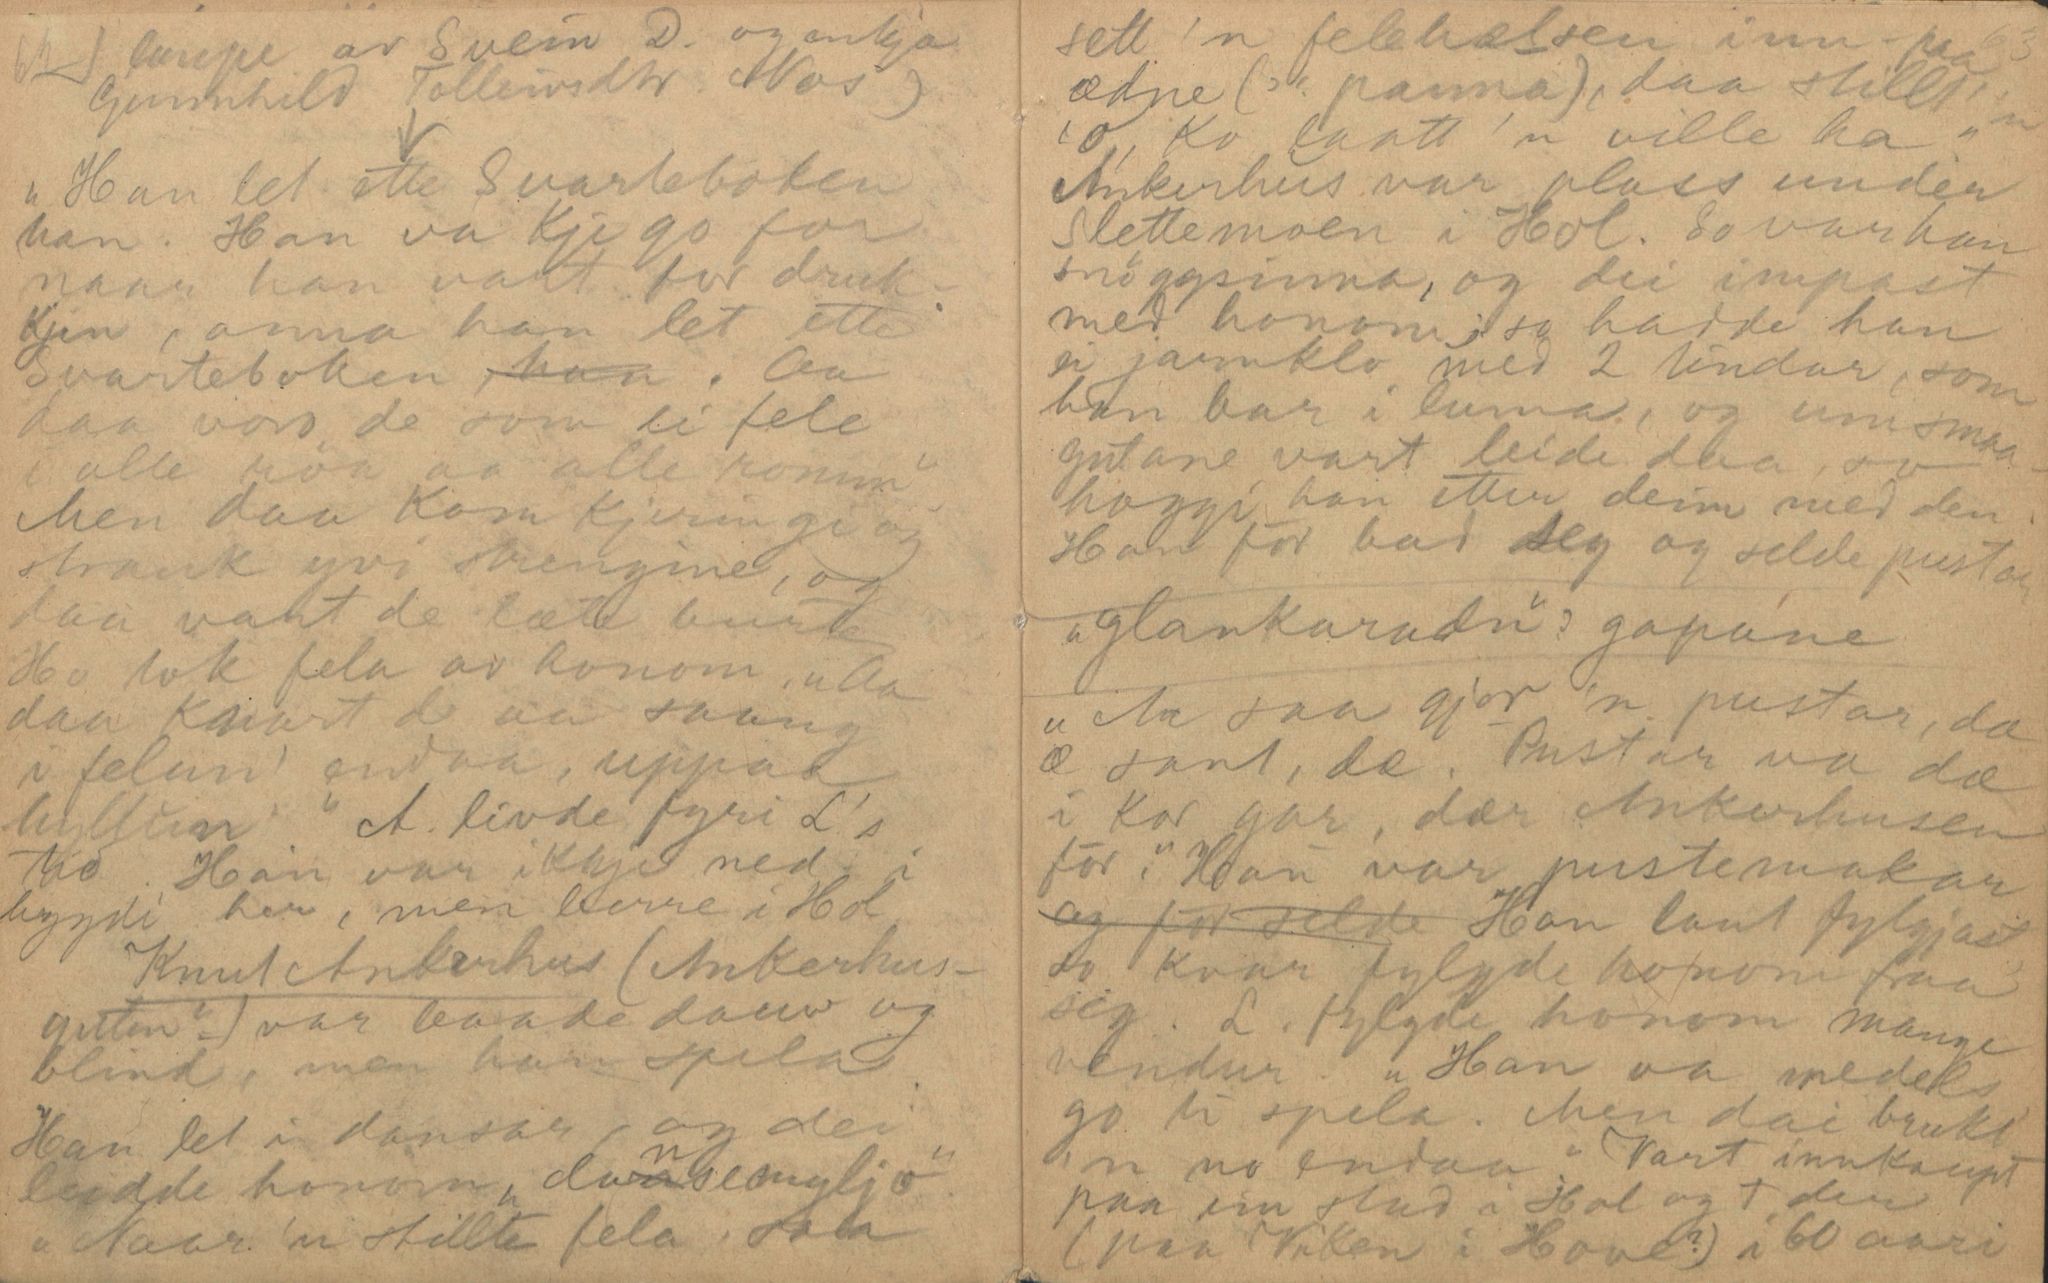 62] laupe av Svein D. og enkja
Gunnhild Tolleivsdtr Nos)
"Han let ette Svarteboken
han. Han va kje go for
naar han vart for druk-
kjin, anna han let ette
Svarteboken, han. Aa
daa vors de som ei fele
i alle röa aa alle romm"
Men daa kom kjeringe og
strauk yvi strengine, og
daa vart de læte burte
Ho tok fela av honom, "Aa
daa kvart d aa saang
i felun' endaa, uppaa
hyllun" A. livde fyri L's
tid. Han var ikkje ned i
bygdi her, men berre i Hol
Knut Ankerhus (Ankerhus-
guten") var baade dauv og
blind, men han spela
Han let i dansar, og dei
leidde honom "dansemyljo"
"Naar 'n stillte fela, saa
63
sett 'n felehalsen inn-paa
ædne (ɔ: panna), daa stillt 'n
'o, ko laatt 'n ville ha"
Ankerhus var plass under
Slettemoen i Hol. So var han
snöggsinna, og dei impast
med honom; so hadde han
ei jarnklo med 2 tindar, som
han bar i luma, og um smaa-
gutane vart leide daa, so
hoggi han etter deim med den.
Han for bad seg og selde pustar
"glankaradn" ɔ: gapane
"Aa saa gjor 'n pustar, dæ
æ sant, dæ. Pustar va dæ
i kor gar, dær Ankerhusen
for." Han var pustemakar
og for selde Han laut fylgjast
so kvar fylgde honom fraa
seg. L. fylgde honom mange
vendur. "Han va medels
go ti spela. Men dai brukt
'n no endaa." Vart innkaupt
paa ein stad i Hol og † der
(paa Viken i Hove?) i 60 aari